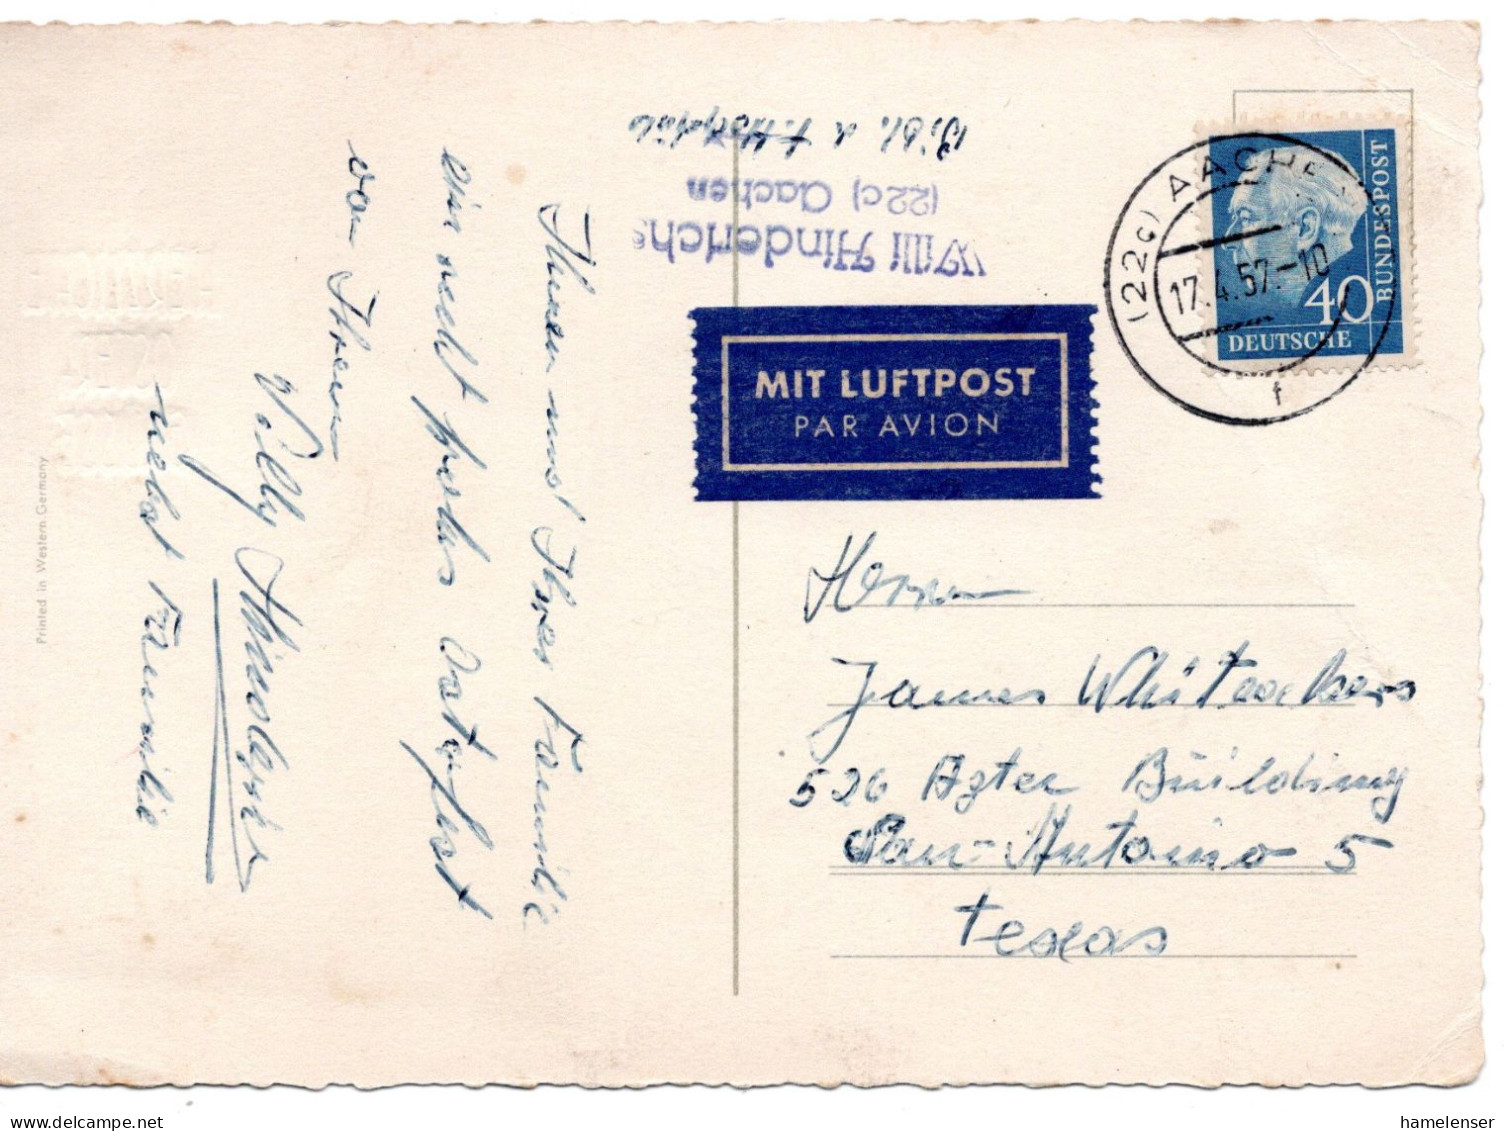 Ihnen und Ihrer Familie
ein recht frohes Osterfest
von Ihrem
Willy Hinderichs
nebst Familie
Printed in Western Germany
HERZLICHE
OSTER
Willi Hinderichs
(22c) Aachen
Bibl. d. T. Hochschule
MIT LUFTPOST
PAR AVION
(22c) AACHEN
17.4.57.-10
f
40
DEUTSCHE
BUNDESPOST
Herrn
James Whiteackers
526 Azter Building
San-Antonio 5
Texas
hamelenser